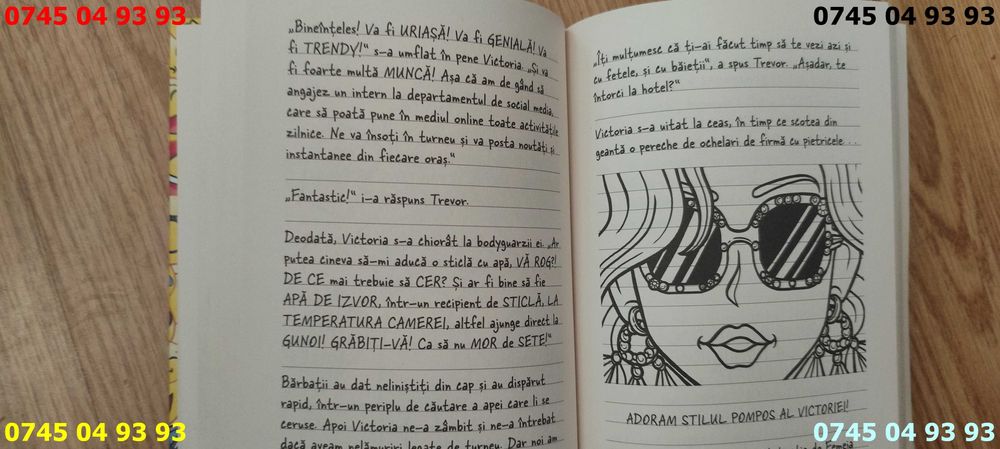 0745 04 93 93
0745 04 93 93
„Bineînțeles! Va fi URIAȘĂ! Va fi GENIALĂ! Va
fi TRENDY!“ s-a umflat în pene Victoria. „Și va
fi foarte multă MUNCĂ! Așa că am de gând să
angajez un intern la departamentul de social media,
care să poată pune în mediul online toate activitățile
zilnice. Ne va însoți în turneu și va posta noutăți și
instantanee din fiecare oraș.“
„Fantastic!“ i-a răspuns Trevor.
Deodată, Victoria s-a chiorât la bodyguarzii ei. „Ar
putea cineva să-mi aducă o sticlă cu apă, VĂ ROG?!
DE CE mai trebuie să CER? Și ar fi bine să fie
APĂ DE IZVOR, într-un recipient de STICLĂ, LA
TEMPERATURA CAMEREI, altfel ajunge direct la
GUNOI! GRĂBIȚI-VĂ! Ca să nu MOR de SETE!“
Bărbații au dat neliniștiți din cap și au dispărut
rapid, într-un periplu de căutare a apei care li se
ceruse. Apoi Victoria ne-a zâmbit și ne-a întrebat
dacă aveam nelămuriri legate de turneu. Dar noi am
„Îți mulțumesc că ți-ai făcut timp să te vezi azi și
cu fetele, și cu băieții“, a spus Trevor. „Așadar, te
întorci la hotel?“
Victoria s-a uitat la ceas, în timp ce scotea din
geantă o pereche de ochelari de firmă cu pietricele...
ADORAM STILUL POMPOS AL VICTORIEI!
de Femeia
0745 04 93 93
0745 04 93 93